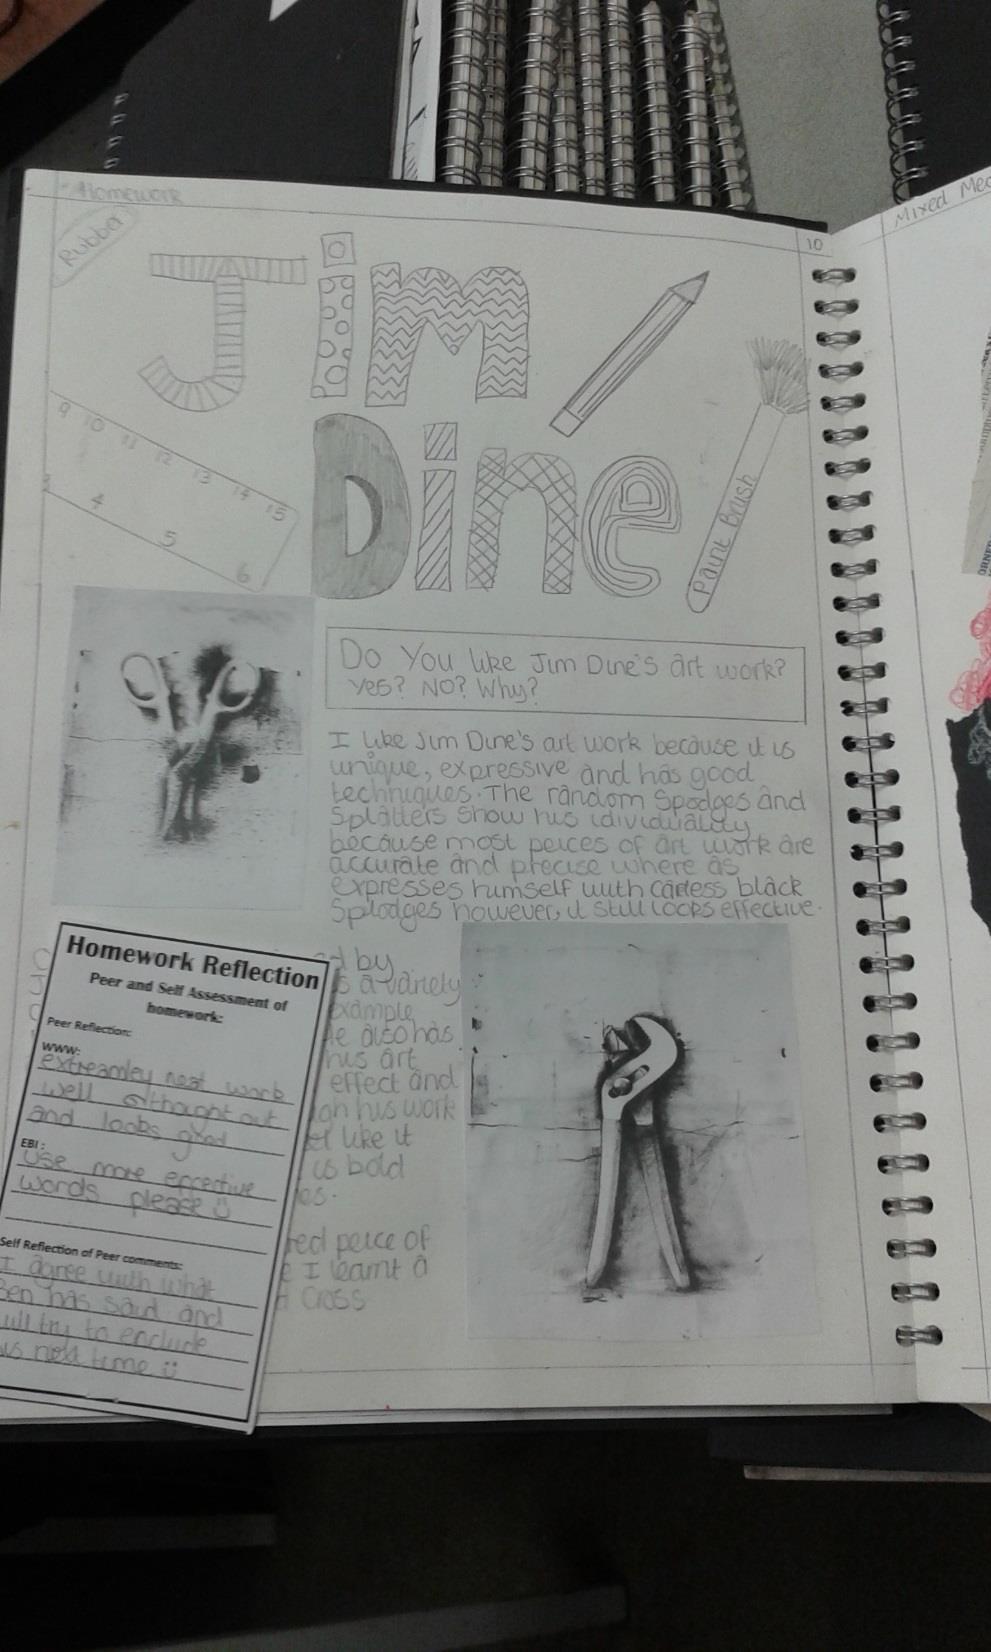 Homework
Rubber
10
Mixed Med
Jim
Dine
9 10 11 12 13 14 15
3 4 5 6
Paint Brush
Do You like Jim Dine's art work?
Yes? NO? Why?
I like Jim Dine's art work because it is
unique, expressive and has good
techniques. The random Spodges and
Splatters show his idividuality
because most peices of art work are
accurate and precise where as
expresses himself with careless black
Splodges however, it still looks effective.
d by
s a variety
example
He also has
his art
effect and
on his work
like it
is bold
es.
red peice of
e I learnt a
Cross
Homework Reflection
Peer and Self Assessment of
homework:
Peer Reflection:
WWW:
extreamley neat work
well thought out
and looks good
EBI:
Use more effective
words please
Self Reflection of Peer comments:
I agree with what
Ben has said and
will try to enclude
this next time